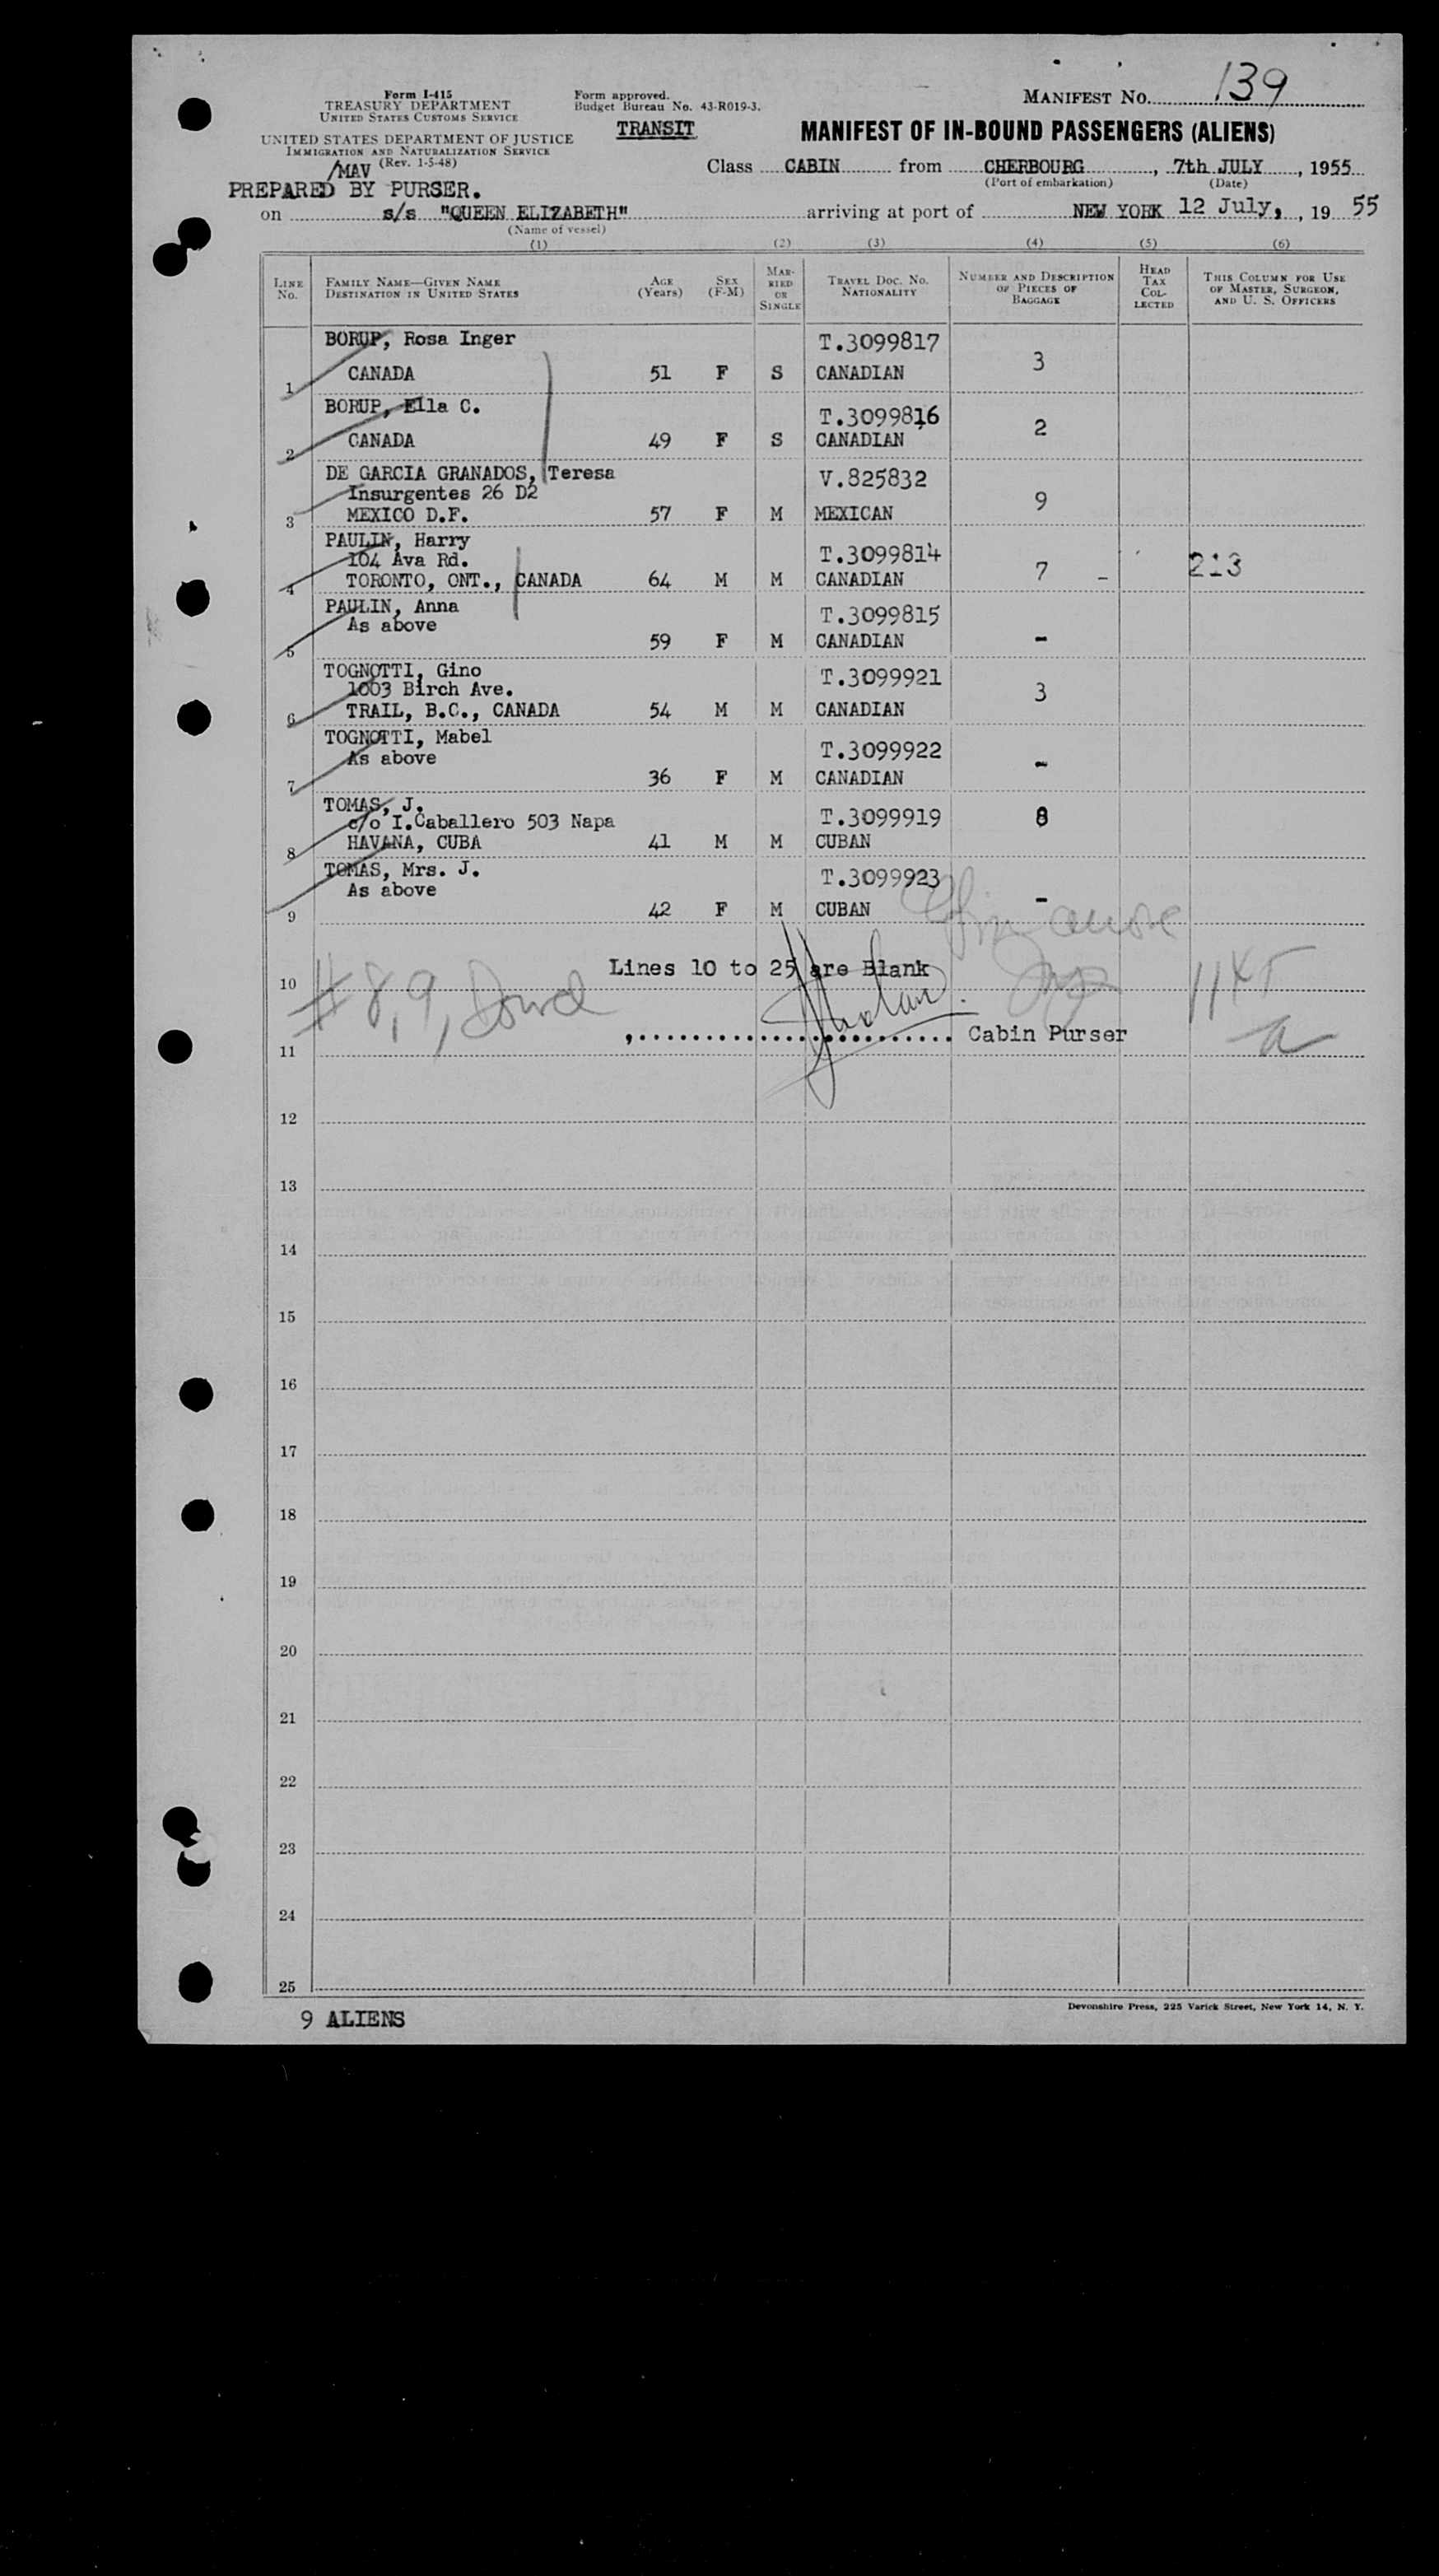 Form I-415
TREASURY DEPARTMENT
UNITED STATES CUSTOMS SERVICE
UNITED STATES DEPARTMENT OF JUSTICE
IMMIGRATION AND NATURALIZATION SERVICE
(Rev. 1-5-48)
/MAV
PREPARED BY PURSER.
Form approved.
Budget Bureau No. 43-R019-3.
TRANSIT
MANIFEST NO. 139
MANIFEST OF IN-BOUND PASSENGERS (ALIENS)
Class CABIN from CHERBOURG, 7th JULY, 1955
(Port of embarkation) (Date)
on s/s "QUEEN ELIZABETH" arriving at port of NEW YORK 12 July, , 19 55
(Name of vessel)
(1) (2) (3) (4) (5) (6)
LINE NO. FAMILY NAME—GIVEN NAME DESTINATION IN UNITED STATES AGE (Years) SEX (F-M) MARRIED OR SINGLE TRAVEL DOC. NO. NATIONALITY NUMBER AND DESCRIPTION OF PIECES OF BAGGAGE HEAD TAX COLLECTED THIS COLUMN FOR USE OF MASTER, SURGEON, AND U. S. OFFICERS
BORUP, Rosa Inger T.3099817
1 CANADA 51 F S CANADIAN 3
BORUP, Ella C. T.3099816
2 CANADA 49 F S CANADIAN 2
DE GARCIA GRANADOS, Teresa V.825832
Insurgentes 26 D2
3 MEXICO D.F. 57 F M MEXICAN 9
PAULIN, Harry T.3099814
104 Ava Rd.
4 TORONTO, ONT., CANADA 64 M M CANADIAN 7 - 213
PAULIN, Anna T.3099815
As above
5 59 F M CANADIAN -
TOGNOTTI, Gino T.3099921
1003 Birch Ave.
6 TRAIL, B.C., CANADA 54 M M CANADIAN 3
TOGNOTTI, Mabel T.3099922
As above
7 36 F M CANADIAN -
TOMAS, J. T.3099919
c/o I.Caballero 503 Napa
8 HAVANA, CUBA 41 M M CUBAN 8
TOMAS, Mrs. J. T.3099923
As above
9 42 F M CUBAN -
Lines 10 to 25 are Blank
10 #8,9,
11 Cabin Purser
12
13
14
15
16
17
18
19
20
21
22
23
24
25
9 ALIENS
Devonshire Press, 225 Varick Street, New York 14, N. Y.